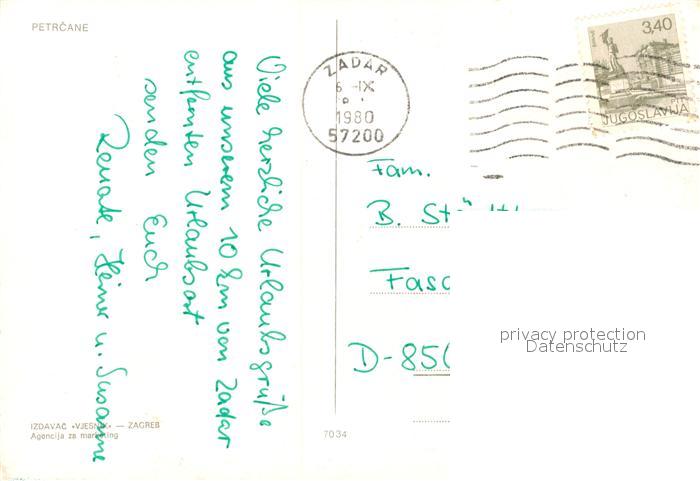 PETRČANE
Viele herzliche Urlaubsgrüße
aus unserem 10 km von Zadar
entfernten Urlaubsort
senden Euch
Renate, Heiner u. Susanne
IZDAVAČ «VJESNIK» — ZAGREB
Agencija za marketing
7034
ZADAR
6 -IX
1980
57200
3,40
JUGOSLAVIJA
Fam.
B.
D-850
privacy protection
Datenschutz